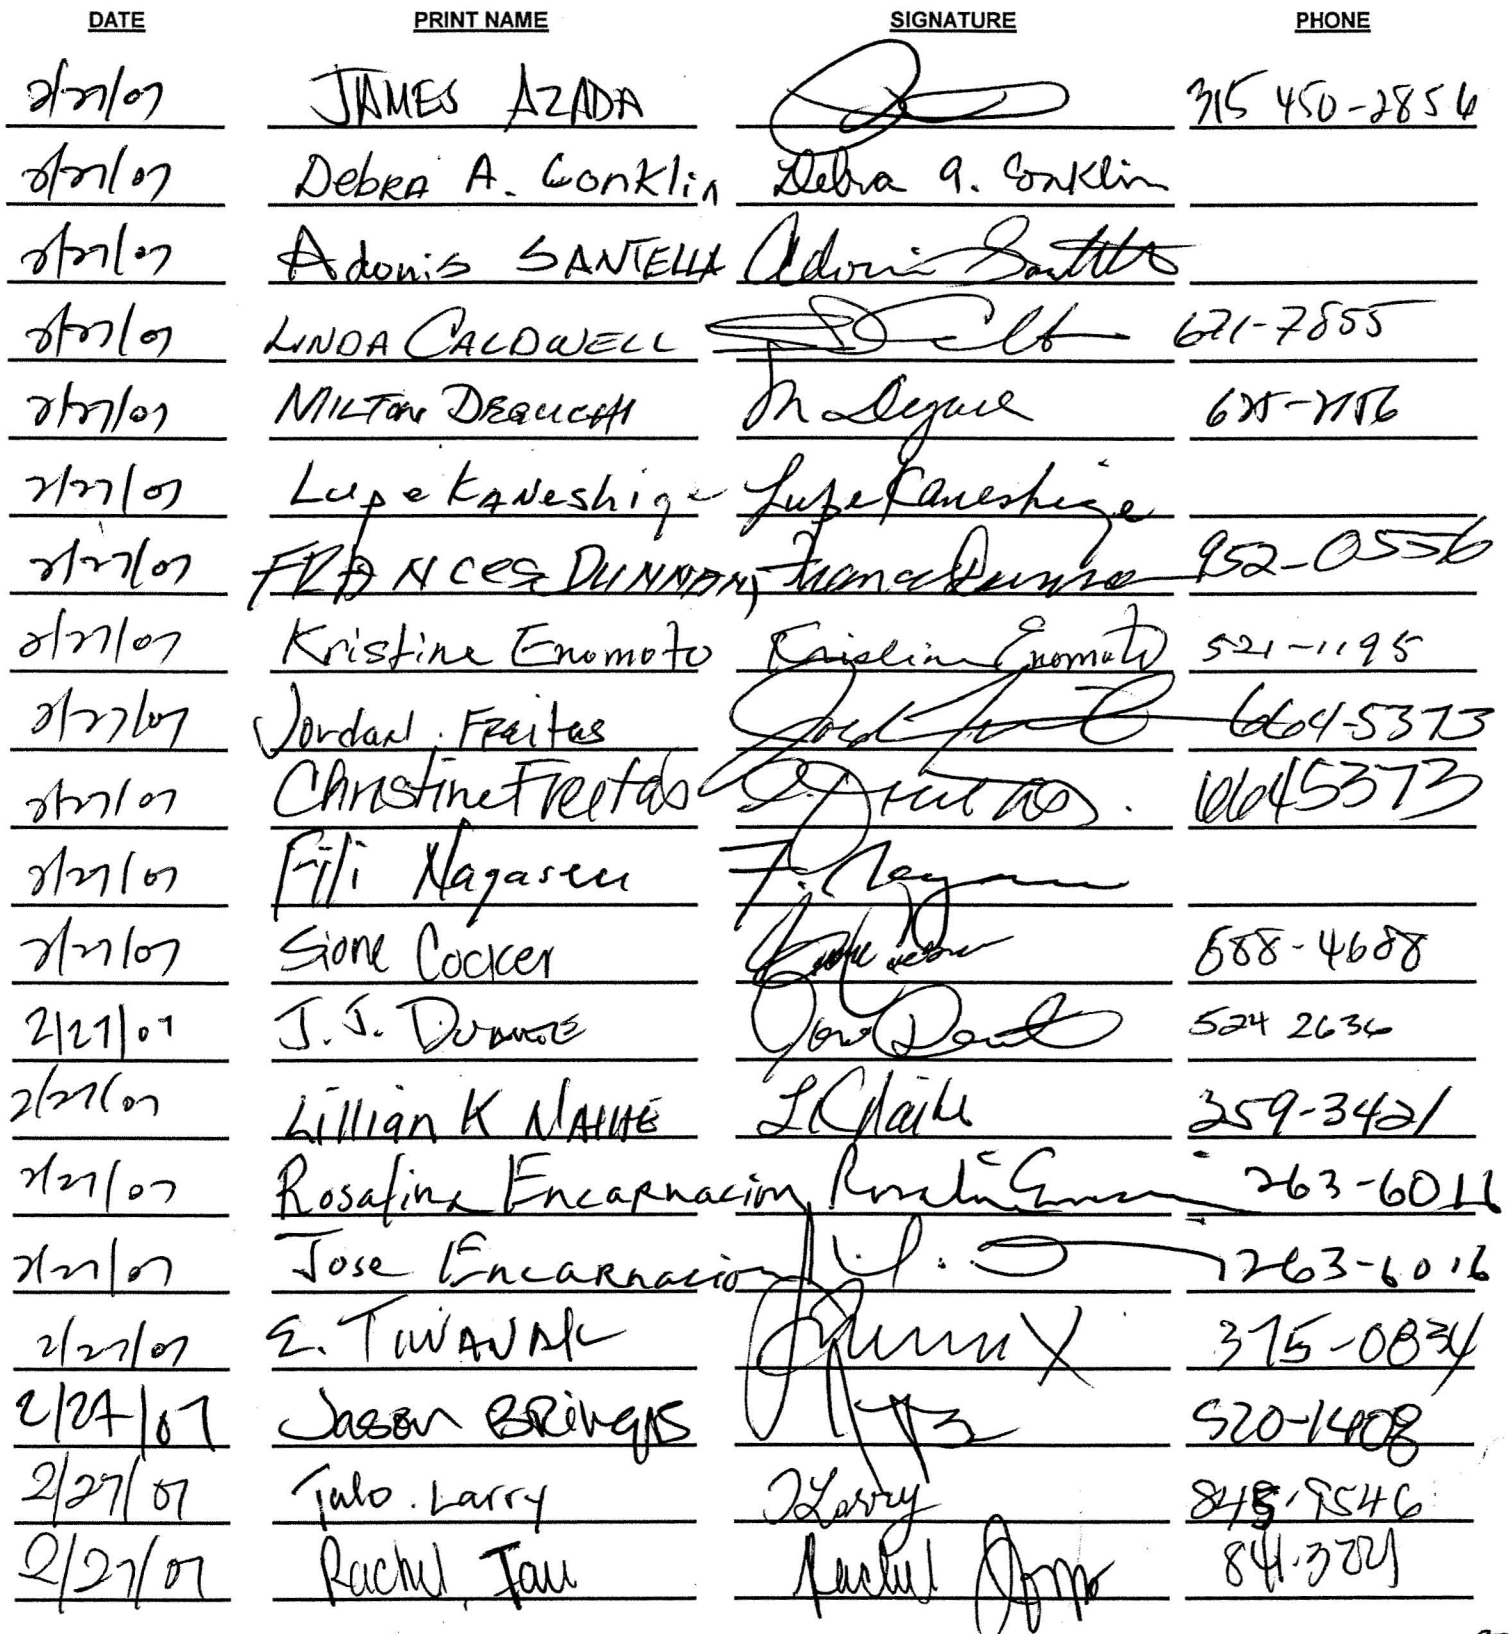 DATE PRINT NAME SIGNATURE PHONE
2/27/07 JAMES AZADA 315 450-2856
2/27/07 Debra A. Conklin Debra A. Conklin
2/27/07 Adonis SANTELLA Adonis
2/27/07 LINDA CALDWELL 671-7855
2/27/07 MILTON DEGUCHI M Deguchi
2/27/07 Lupe KANeshige Lupe Kaneshige
2/27/07 FRANCES DUNMAN, 952-0556
2/27/07 Kristine Enomoto Kristine Enomoto 521-1195
2/27/07 Jordan Freitas 664-5373
2/27/07 Christine Freitas C. Freitas 6645373
2/27/07 Fili Nagaseu
2/27/07 Sione Cocker 688-4688
2/27/07 J.J. 524 2636
2/27/07 Lillian K NAIHE LK Naihe 259-3421
2/27/07 Rosafina Encarnacion 263-6011
2/27/07 Jose Encarnacion 263-6016
2/27/07 E. 375-0834
2/27/07 Jason 520-1408
2/27/07 Talo. Larry TLarry
2/27/07 Rachel Tau Rachel